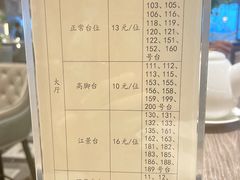 103、105、
106、118、
119、120、
正常台位 13元/位 121、122、
150、151、
152、160
号台
大厅
111、112、
113、115、
高脚台 10元/位 153、155、
156、158、
159、199、
200号台
130、131、
132、133、
135、161、
江景台 16元/位 162、163、
165、181、
182、183、
185、186、
188、
189号台
11、12、